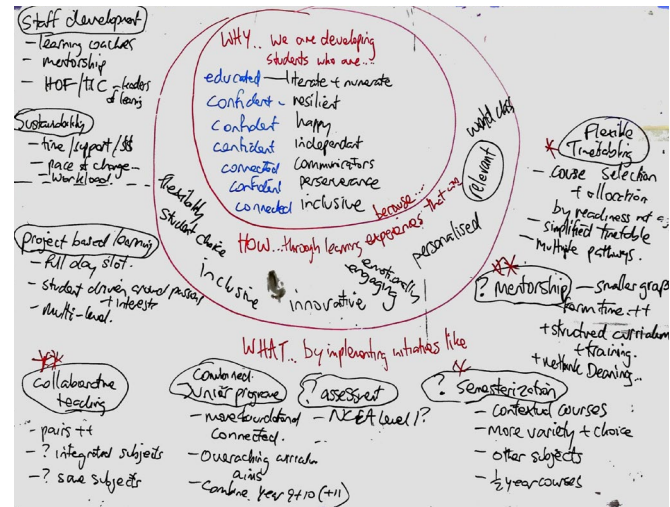 Staff development
- learning coaches
- mentorship
- HOF/TIC - leaders
of learning
Sustainability
- time/support/$$
- pace of change
- workload.
project based learning
- full day slot.
- student driven around passion
+ interest
- multi-level.
WHY... we are developing
students who are....
educated — literate + numerate
confident - resilient
confident happy
confident independent
connected communicators
confident perseverance
connected inclusive
because...
HOW...through learning experiences that are
flexibility
student choice
inclusive
innovative
emotionally
engaging
personalised
relevant
world class
* Flexible
Timetabling
- course selection
+ allocation
by readiness not
- simplified timetable
- Multiple pathways.
** ? mentorship — smaller group
form time ++
+ structured curriculum
+ training.
+ rethink Deaning...
WHAT... by implementing initiatives like
** collaborative
teaching
- pairs ++
- ? integrated subjects
- ? same subjects
combined
junior programe
- more foundational
connected.
- Overaching curriculum
aims
- Combine year 9+10 (+11)
? assessment
- NCEA Level 1?
* ? semesterization
- contextual courses
- more variety + choice
- other subjects
- ½ year courses